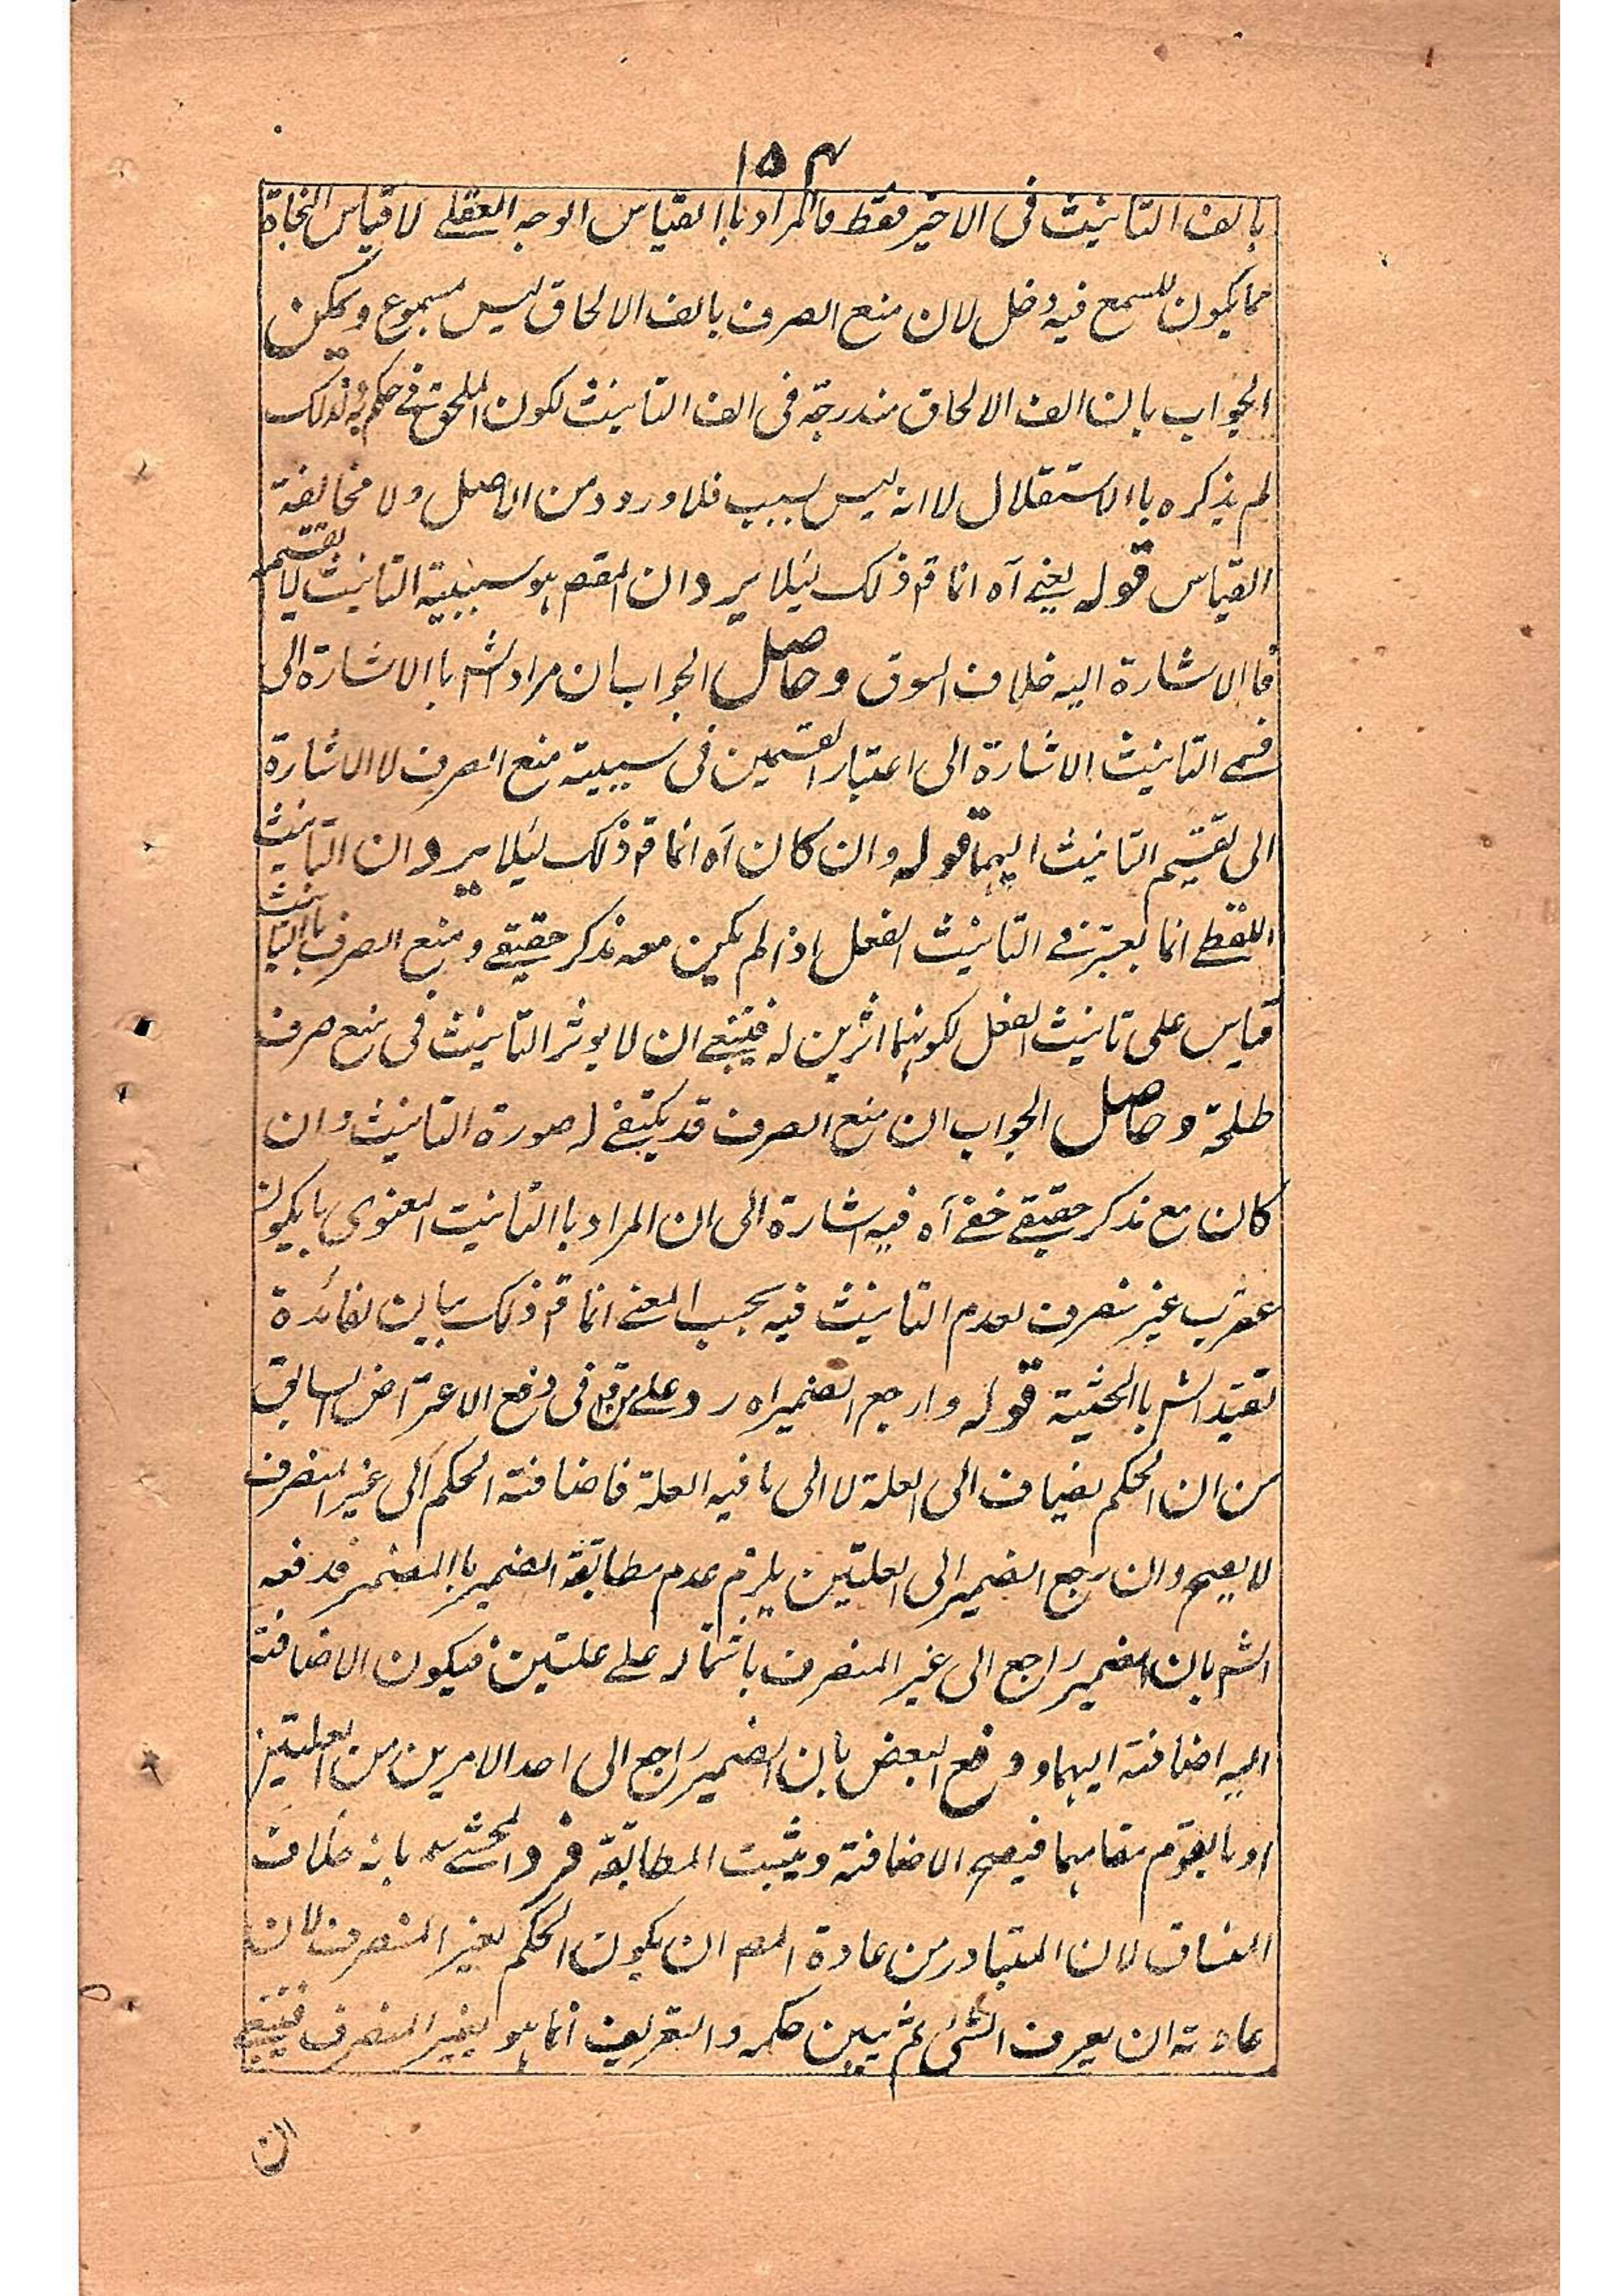 ١٥٤
بالف التانيث فى الاخير فقط فالمراد باالقياس الوجه العقلے لا قياس النحاة
مما يكون للسمع فيه دخل لان منع الصرف بالف الالحاق ليس مسموع ويمكن
الجواب بان الف الالحاق مندرجة فى الف التانيث لكون الملحق فے حكم به فلذلك
لم يذكره باالاستقلال لا انه ليس بسبب فلا ورود من الاصل ولا مخالفة
القياس قوله يعنے آه انما قم ذلك لئلا يرد ان المقصم هو سببية التانيث لا تقسيمه
فاالاشارة اليه خلاف السوق وحاصل الجواب ان مراد الشم باالاشارة الى
قسمے التانيث الاشارة الى اعتبار القسمين فى سببية منع الصرف لا الاشارة
الى تقسيم التانيث اليهما قوله وان كان آه انما قم ذلك لئلا يرد ان التانيث
اللفظے انما يعتبر فے التانيث الفعل اذا لم يكين معه مذكر حقيقے ومنع الصرف باالتانيث
قياس على تانيث الفعل لكونهما اثرين له فينبغے ان لا يوثر التانيث فى منع صرف
طلحة وحاصل الجواب ان منع الصرف قد يكتفے له صورة التانيث وان
كان مع مذكر حقيقے خفے آه فيه اشارة الى ان المراد باالتانيث المعنوى ما يكون
عقرب غير منصرف لعدم التانيث فيه بحسب المعنے انما قم ذلك بيان لفائدة
تقيد الشم باالحيثية قوله وارجع الضمير اه رد علے من قم فى دفع الاعتراض السابق
من ان الحكم يضاف الى العلة لا الى ما فيه العلة فاضافة الحكم الى غير المنصرف
لا يصح وان رجع الضمير الى العلتين يلزم عدم مطابقة الضمير باالمضمر فدفعه
الشم بان الضمير راجع الى غير المنصرف باشتماله علے علتين فيكون الاضافة
اليه اضافة اليهما ودفع البعض بان الضمير راجع الى احد الامرين من العلتين
او ما يقوم مقامهما فيصح الاضافة ويثبت المطابقة فرد المحشے بانه خلاف
المنساق لان المتبادر من عادة المصم ان يكون الحكم لغير المنصرف لان
عادته ان يعرف الشئ ثم يبين حكمه والتعريف انما هو لغير المنصرف فينبغے
ان